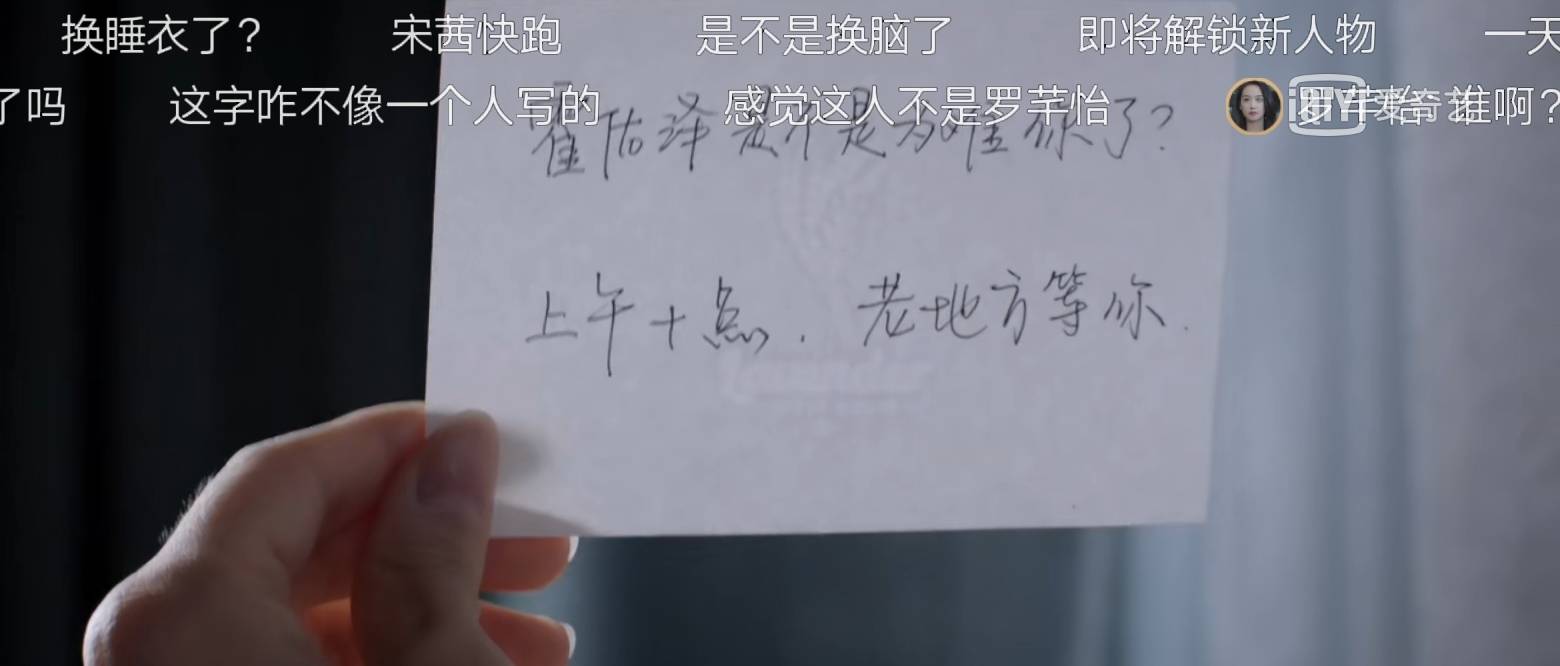 换睡衣了？ 宋茜快跑 是不是换脑了 即将解锁新人物 一天
了吗 这字咋不像一个人写的 感觉这人不是罗芊怡 罗芊怡 谁啊？
iQIYI 爱奇艺
霍佑泽是不是为难你了？
上午十点．老地方等你．